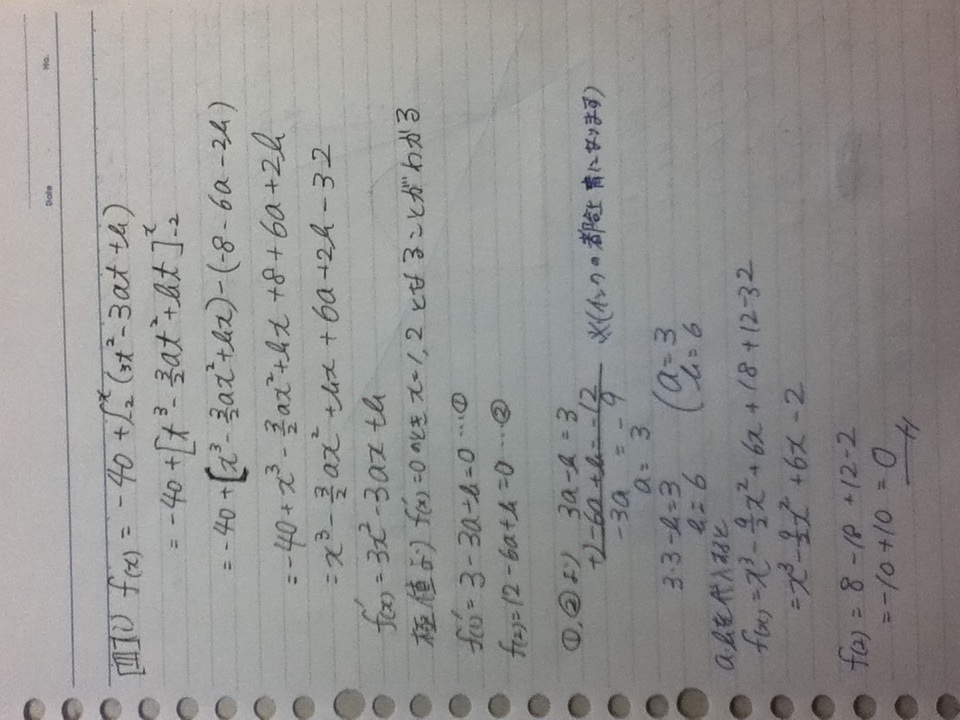 Date No.
[III] i) f(x) = -40 + ∫₋₂ˣ (3t² - 3at + b)
= -40 + [t³ - 3/2 at² + bt]ˣ₋₂
= -40 + [x³ - 3/2 ax² + bx) - (-8 - 6a - 2b)
= -40 + x³ - 3/2 ax² + bx + 8 + 6a + 2b
= x³ - 3/2 ax² + bx + 6a + 2b - 32
f'(x) = 3x² - 3ax + b
極値より f'(x) = 0 のとき x = 1, 2 となることがわかる
f'(1) = 3 - 3a + b = 0 … ①
f(2) = 12 - 6a + b = 0 … ②
①, ②より 3a - b = 3
+) -6a + b = -12 ※(インクの都合上 青になります)
-3a = -9
a = 3
3·3 - b = 3 (a = 3
b = 6 b = 6
a, bを代入すると
f(x) = x³ - 9/2 x² + 6x + 18 + 12 - 32
= x³ - 9/2 x² + 6x - 2
f(2) = 8 - 18 + 12 - 2
= -10 + 10 = 0